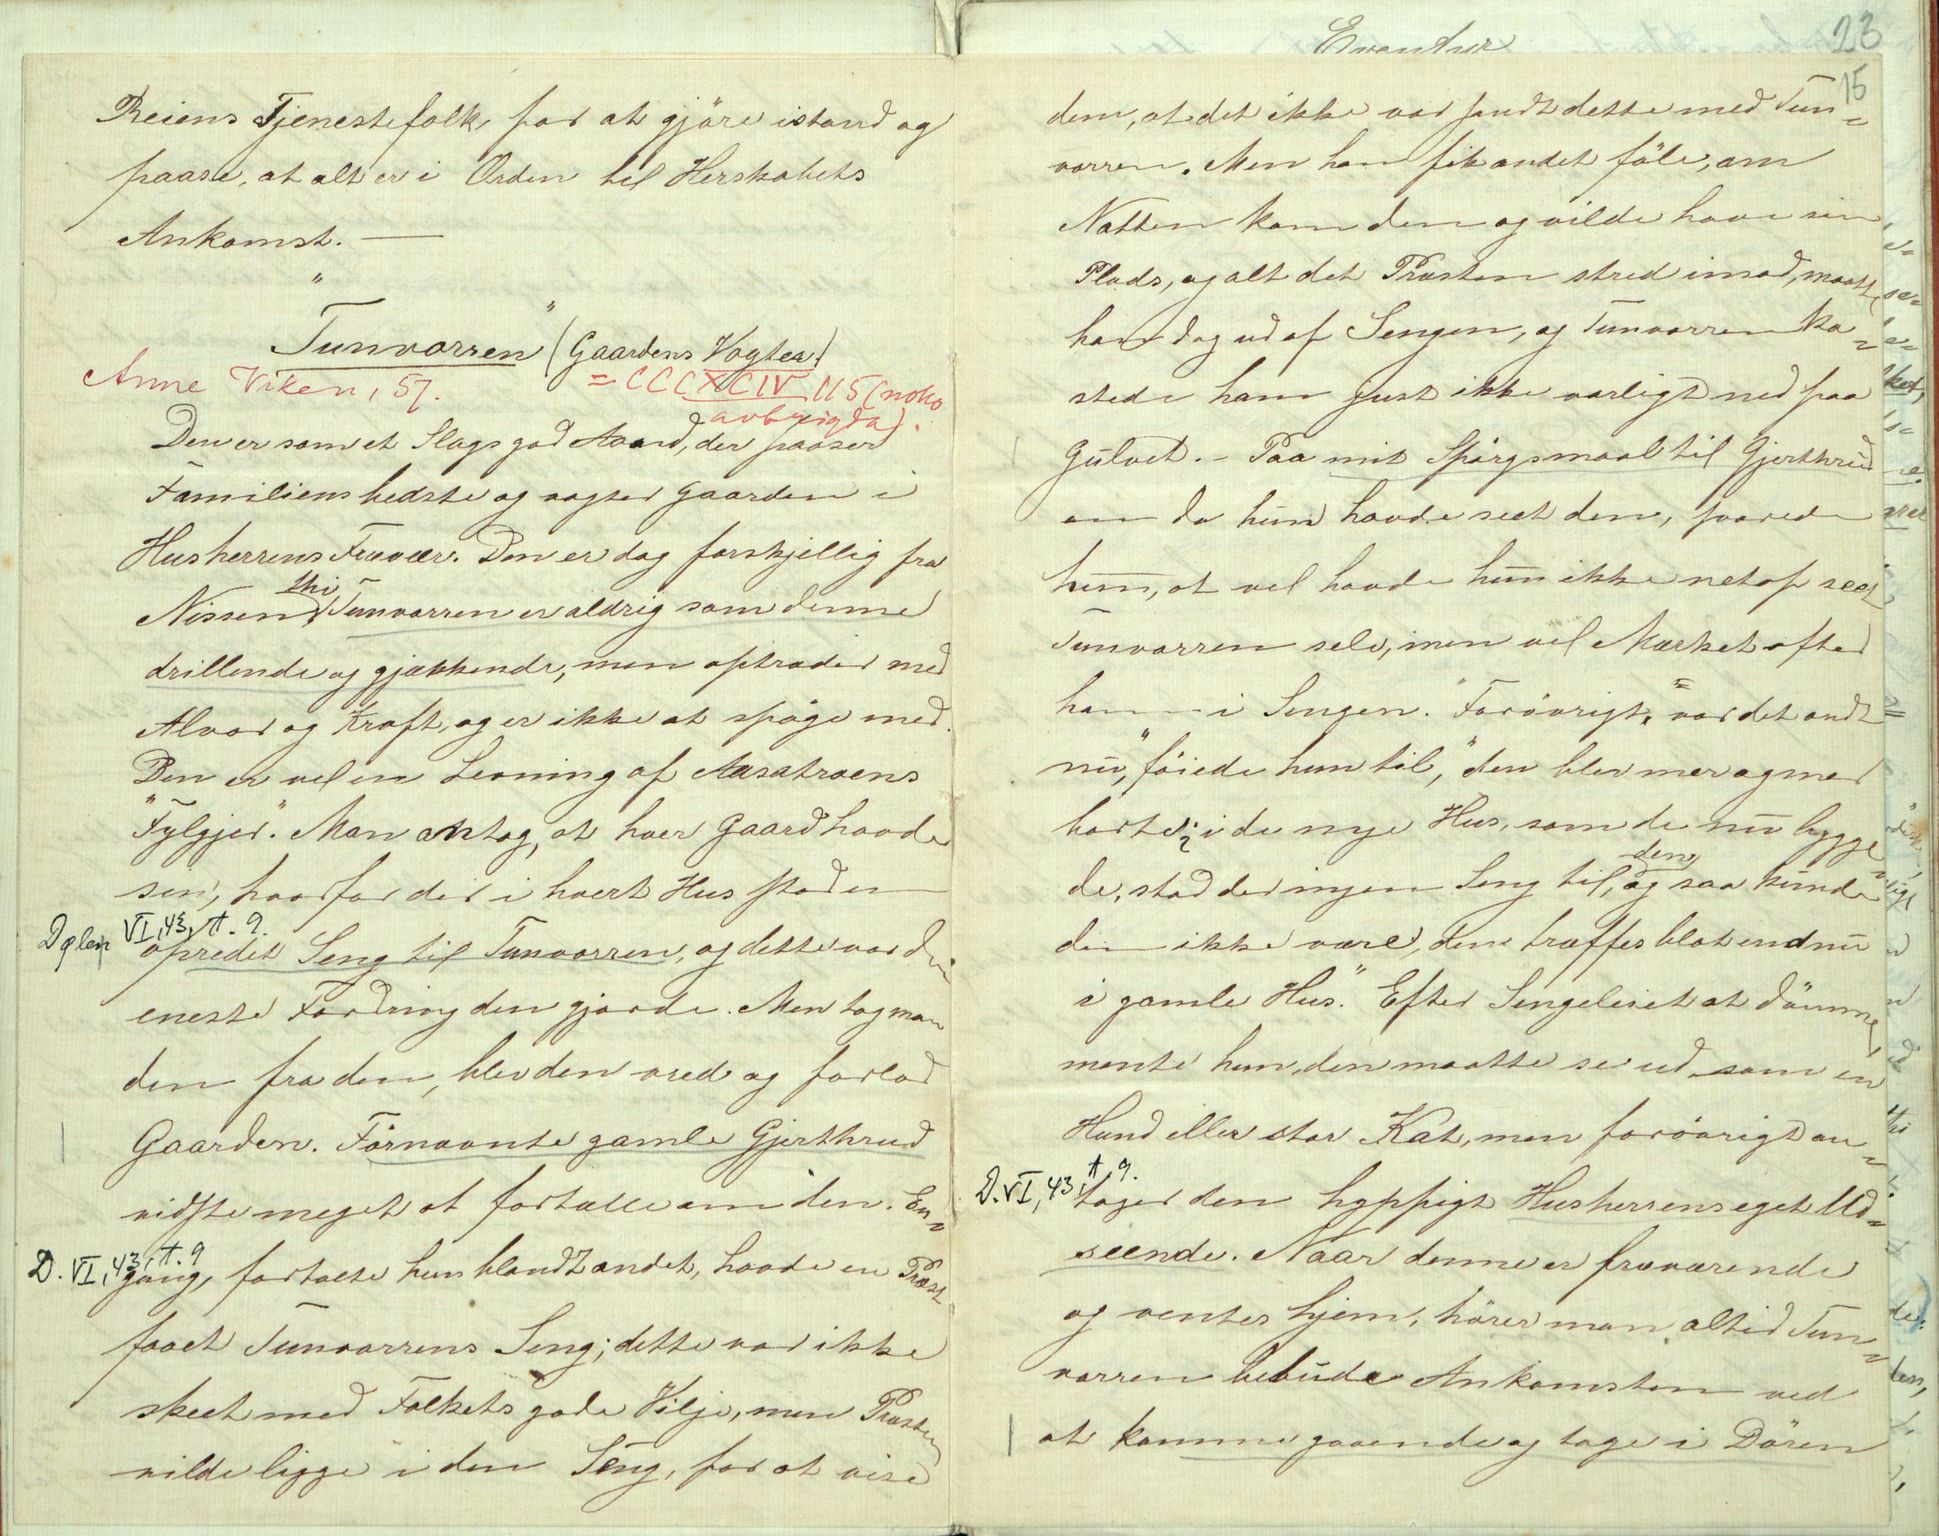 Reiens Tjenestefolk, for at gjöre istand og
paase, at alt er i Orden til Herskabets
Ankomst. —
"Tunvorren" (Gaardens Vogter)
Anne Viken, 57.
= CCCXCIV 115 (noko
avbrigda).
Den er som et Slags god Aand, der passer
Familiens bedste og vogter Gaarden i
Husherrens Fravær. Den er dog forskjellig fra
Nissen, thi Tunvorren er aldrig som denne
drillende og gjækkende, men optræder med
Alvor og Kraft, og er ikke at spöge med.
Den er vel en Levning af Asatroens
"Fylgjer". Man antog, at hver Gaard havde
sin, hvorfor der i hvert Hus stod en
VI, 43, A. 9.
opredet Seng til Tunvorren, og dette var den
eneste Fordring den gjorde. Men tog man
den fra den, blev den vred og forlod
Gaarden. Förnævnte gamle Gjerthrud
vidste meget at fortælle om den. En-
D. VI, 43, A. 9
gang, fortalte hun blandt andet, havde en Præst
faaet Tunvorrens Seng; dette var ikke
skeet med Folkets gode Vilje, men Præsten
vilde ligge i den Seng, for at vise
Eventyr
23
15
dem, at det ikke var sandt dette med Tun-
vorren. Men han fik andet föle, om
Natten kom den og vilde have sin
Plads, og alt det Præsten stred imod, maatte
han dog ud af Sengen, og Tunvorren ka-
stede ham just ikke varligt ned paa
Gulvet. – Paa mit Spörgsmaal til Gjerthrud
om da hun havde seet den, svarede
hun, at vel havde hun ikke netop seet
Tunvorren selv, men vel Mærket efter
ham i Sengen. "Forövrigt" var det endt
nu", föiede hun til, "den blev mer og mer
borte; i de nye Hus, som de nu bygge-
de, stod der ingen Seng til den, og saa kunde
den ikke være, den træffes blot endnu
i gamle Hus". Efter Sengeleiet at dömme,
mente hun, den maatte se ud som en
Hund eller stor Kat, men forövrigt an-
D. VI, 43, A. 9.
tager den hyppigt Husherrens eget Ud-
seende. Naar denne er fraværende
og ventes hjem, hörer man altid Tun-
vorren bebude Ankomsten ved
at komme gaaende og tage i Dören